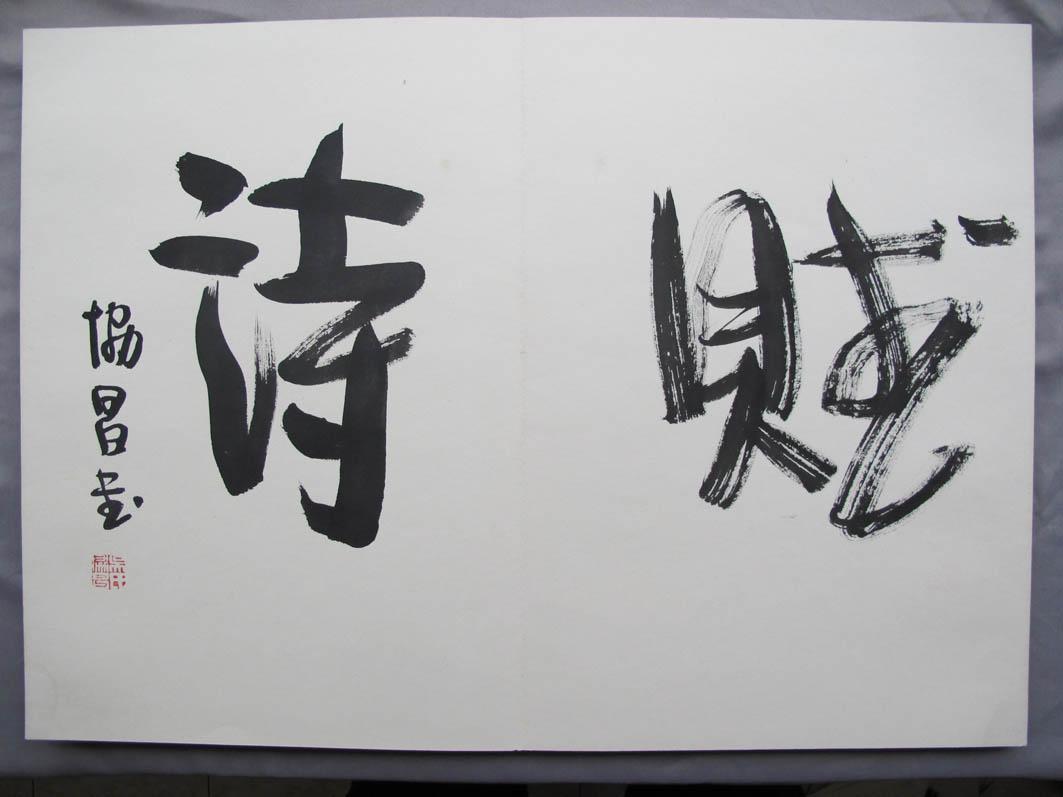 賦詩
協昌書